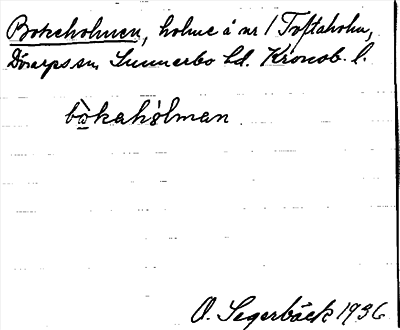 Bokeholmen, holme å nr 1 Toftaholm,
Dörarps sn. Sunnerbo hd. Kronob. l.
bòkahålman
O. Segerbäck 1936